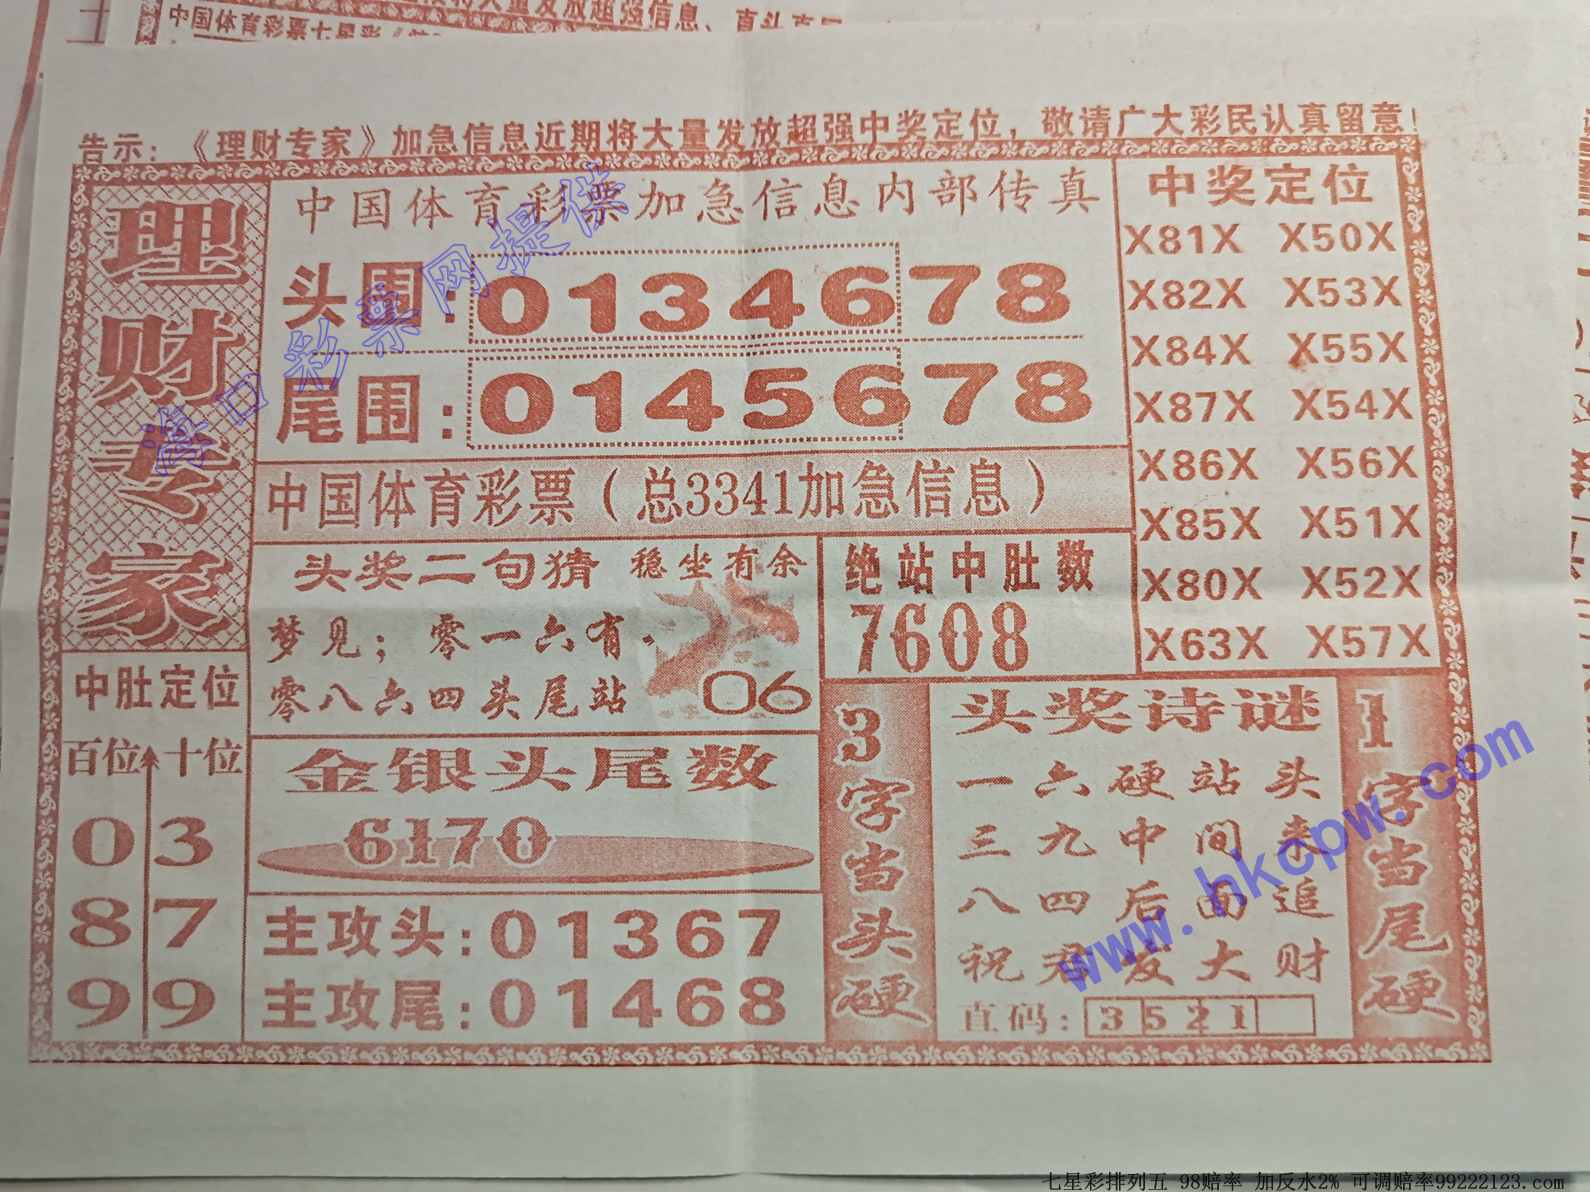 中国体育彩票七星彩
告示：《理财专家》加急信息近期将大量发放超强中奖定位，敬请广大彩民认真留意！
理财专家
中国体育彩票加急信息内部传真
头围：0134678
尾围：0145678
中国体育彩票（总3341加急信息）
中奖定位
X81X X50X
X82X X53X
X84X X55X
X87X X54X
X86X X56X
X85X X51X
X80X X52X
X63X X57X
头奖二句猜 稳坐有余
梦见；零一六有，
零八六四头尾站
06
绝站中肚数
7608
中肚定位
百位 十位
0 3
8 7
9 9
金银头尾数
6170
主攻头：01367
主攻尾：01468
3字当头硬
头奖诗谜
一六硬站头
三九中间来
八四后面追
祝君发大财
直码：3521
1字当尾硬
海口彩票网提供
www.hkcpw.com
七星彩排列五 98赔率 加反水2% 可调赔率99222123.com